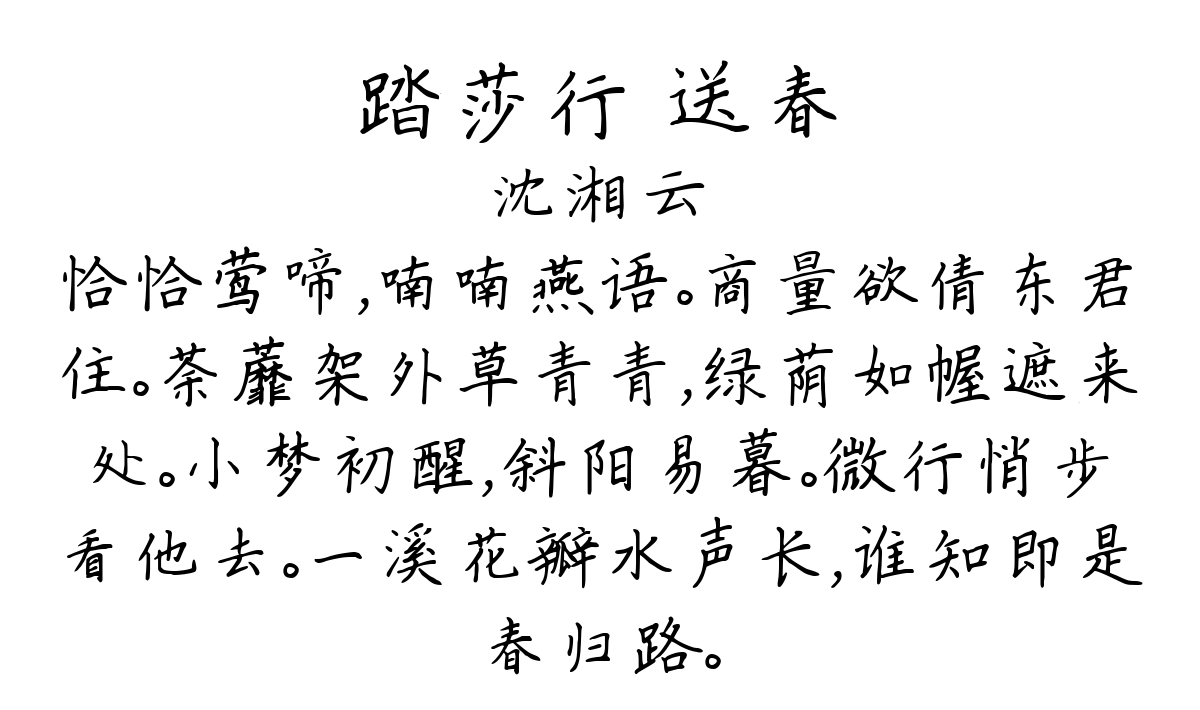 踏莎行 送春
沈湘云
恰恰莺啼,喃喃燕语。商量欲倩东君
住。荼蘼架外草青青,绿荫如幄遮来
处。小梦初醒,斜阳易暮。微行悄步
看他去。一溪花瓣水声长,谁知即是
春归路。